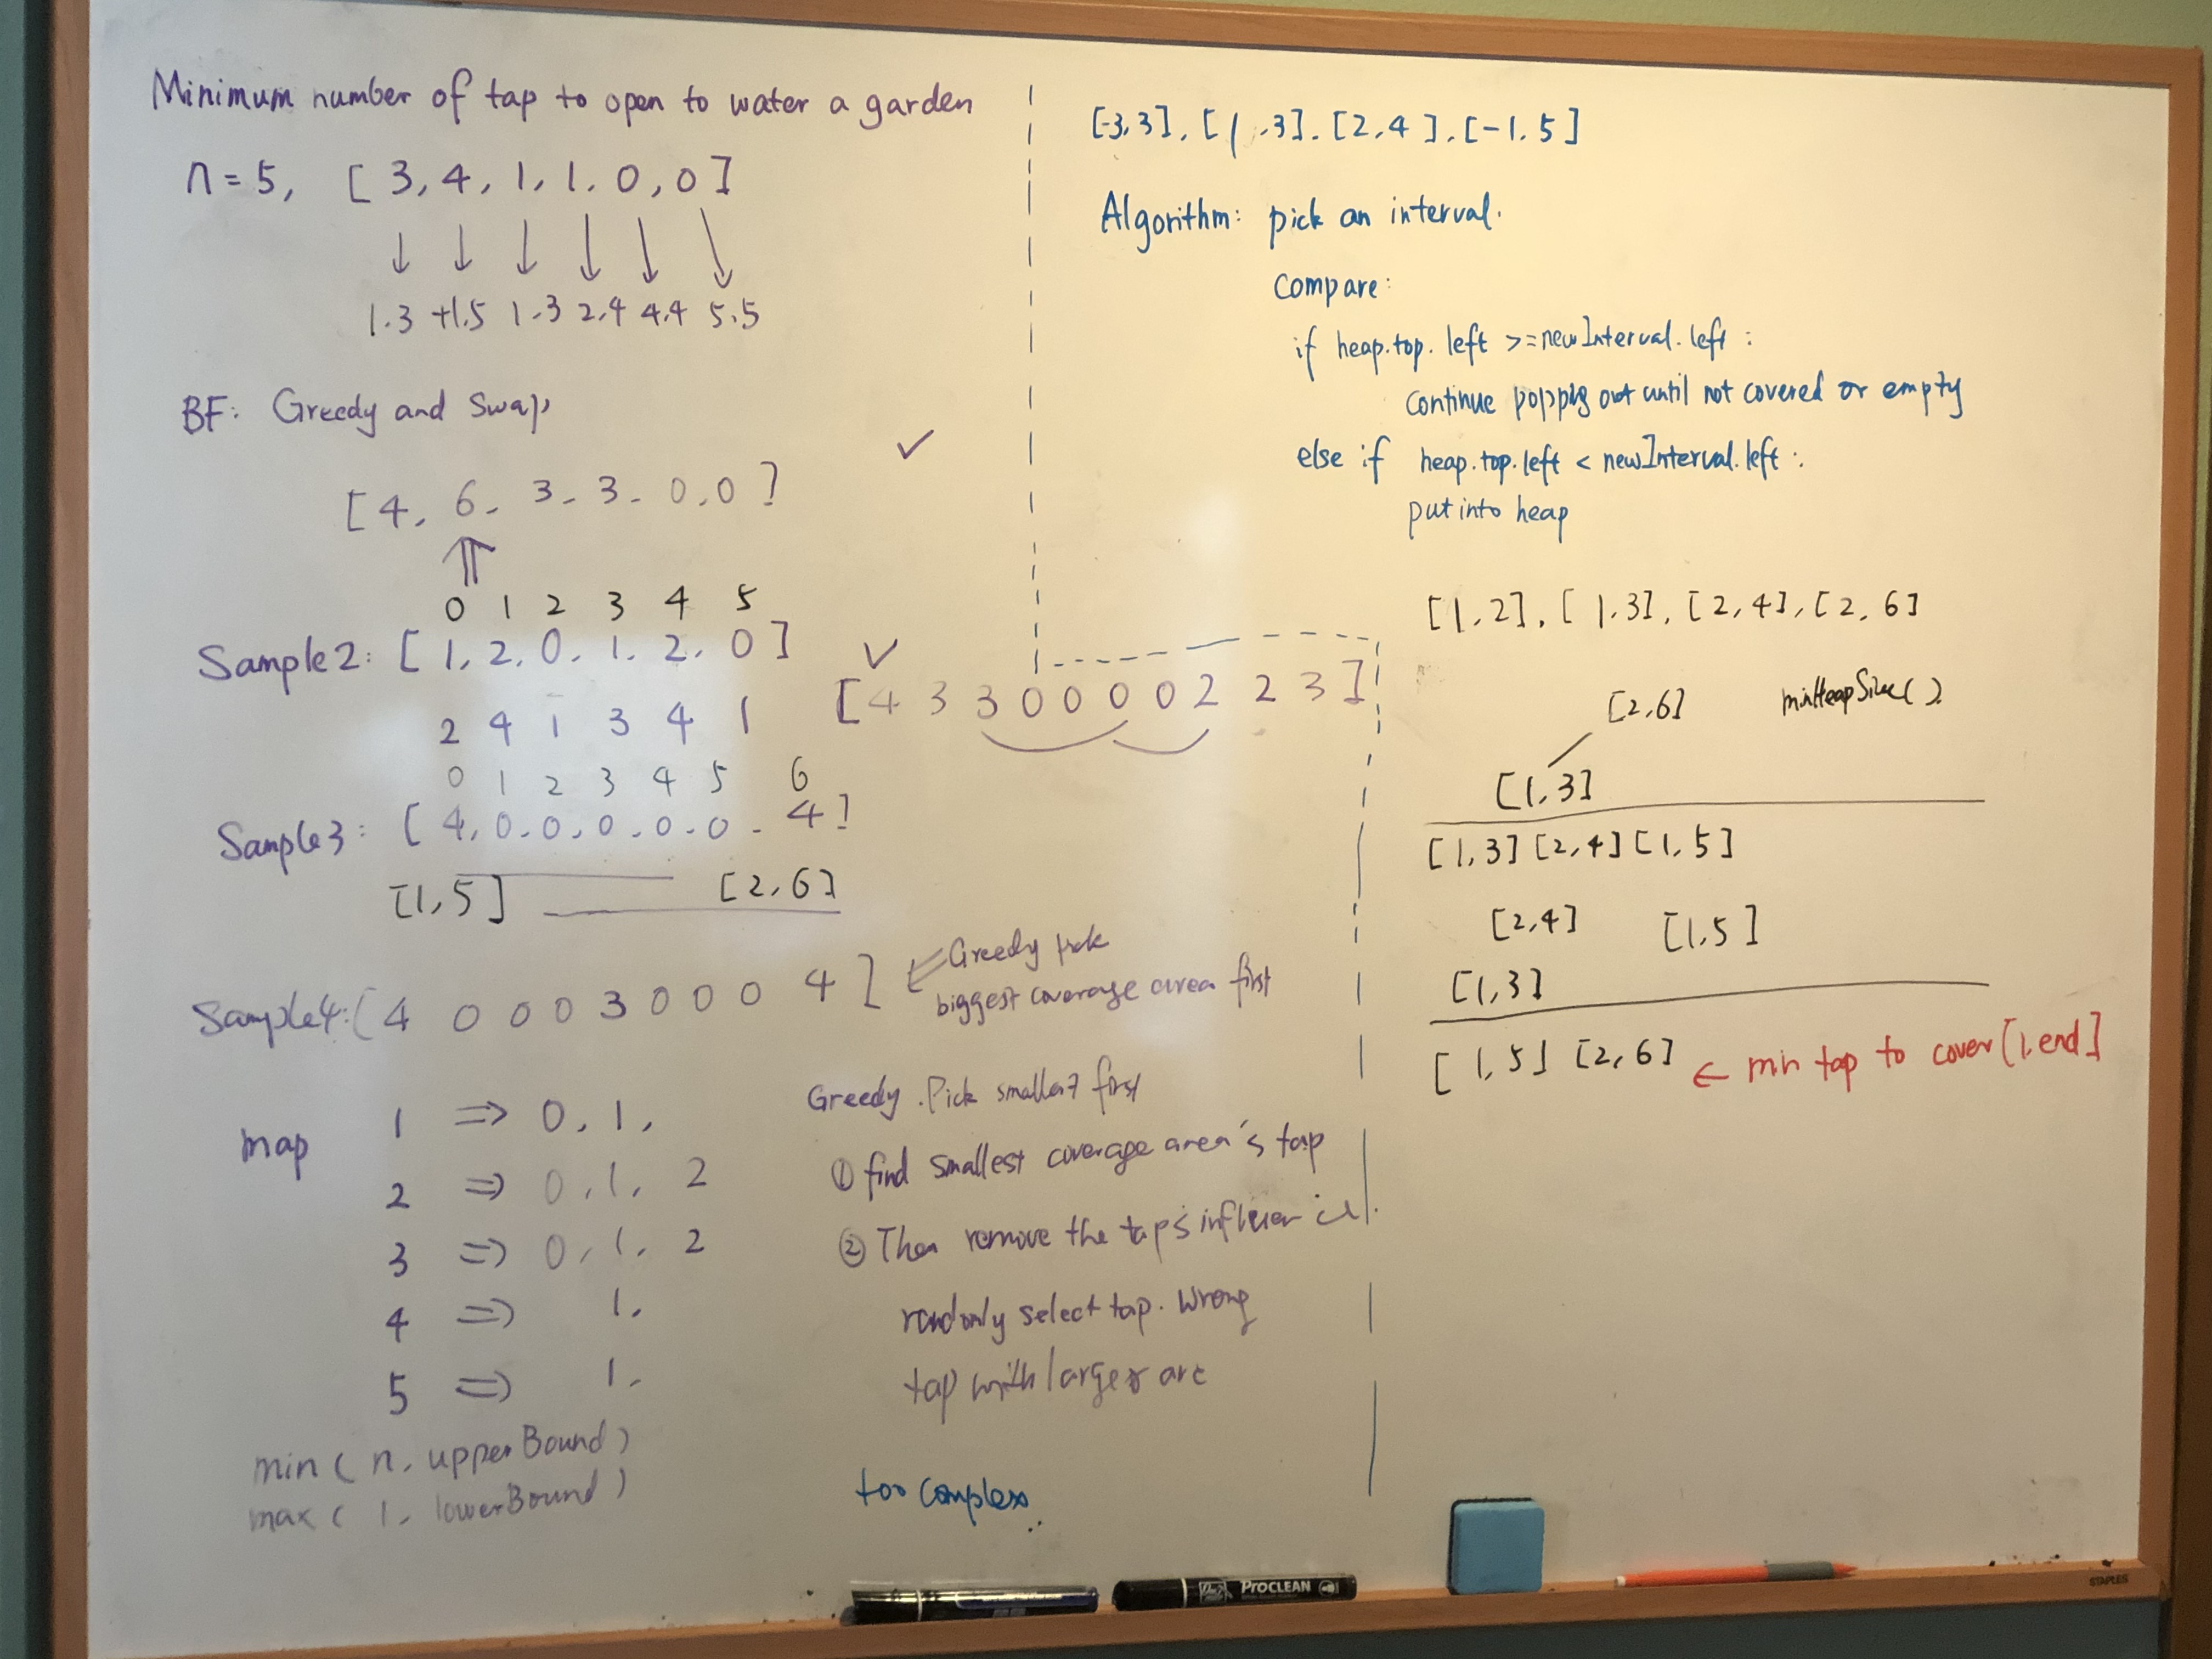 Minimum number of tap to open to water a garden
n = 5, [ 3, 4, 1, 1, 0, 0 ]
1.3 +1.5 1.3 2.4 4.4 5.5
BF: Greedy and Swap
[ 4, 6, 3, 3, 0, 0 ]
0 1 2 3 4 5
Sample2: [ 1, 2, 0, 1, 2, 0 ]
2 4 1 3 4 1
[ 4 3 3 0 0 0 0 2 2 3 ]
0 1 2 3 4 5 6
Sample3: [ 4, 0, 0, 0, 0, 0, 4 ]
[1, 5] [2, 6]
Sample4: [ 4 0 0 0 3 0 0 0 4 ]
Greedy pick
biggest coverage area first
map
1 => 0, 1,
2 => 0, 1, 2
3 => 0, 1, 2
4 => 1,
5 => 1,
min ( n, upperBound )
max ( 1, lowerBound )
Greedy. Pick smallest first
① find smallest coverage area's tap
② Then remove the tap's
randonly select tap. Wrong
tap with larger
too complex
[-3, 3], [1, 3], [2, 4], [-1, 5]
Algorithm: pick an interval.
Compare:
if heap.top.left >= newInterval.left :
continue popping out until not covered or empty
else if heap.top.left < newInterval.left :
put into heap
[1, 2], [1, 3], [2, 4], [2, 6]
[2, 6]
[1, 3]
[1, 3] [2, 4] [1, 5]
[2, 4] [1, 5]
[1, 3]
[1, 5] [2, 6] ← min tap to cover [1, end]
PROCLEAN
STAPLES